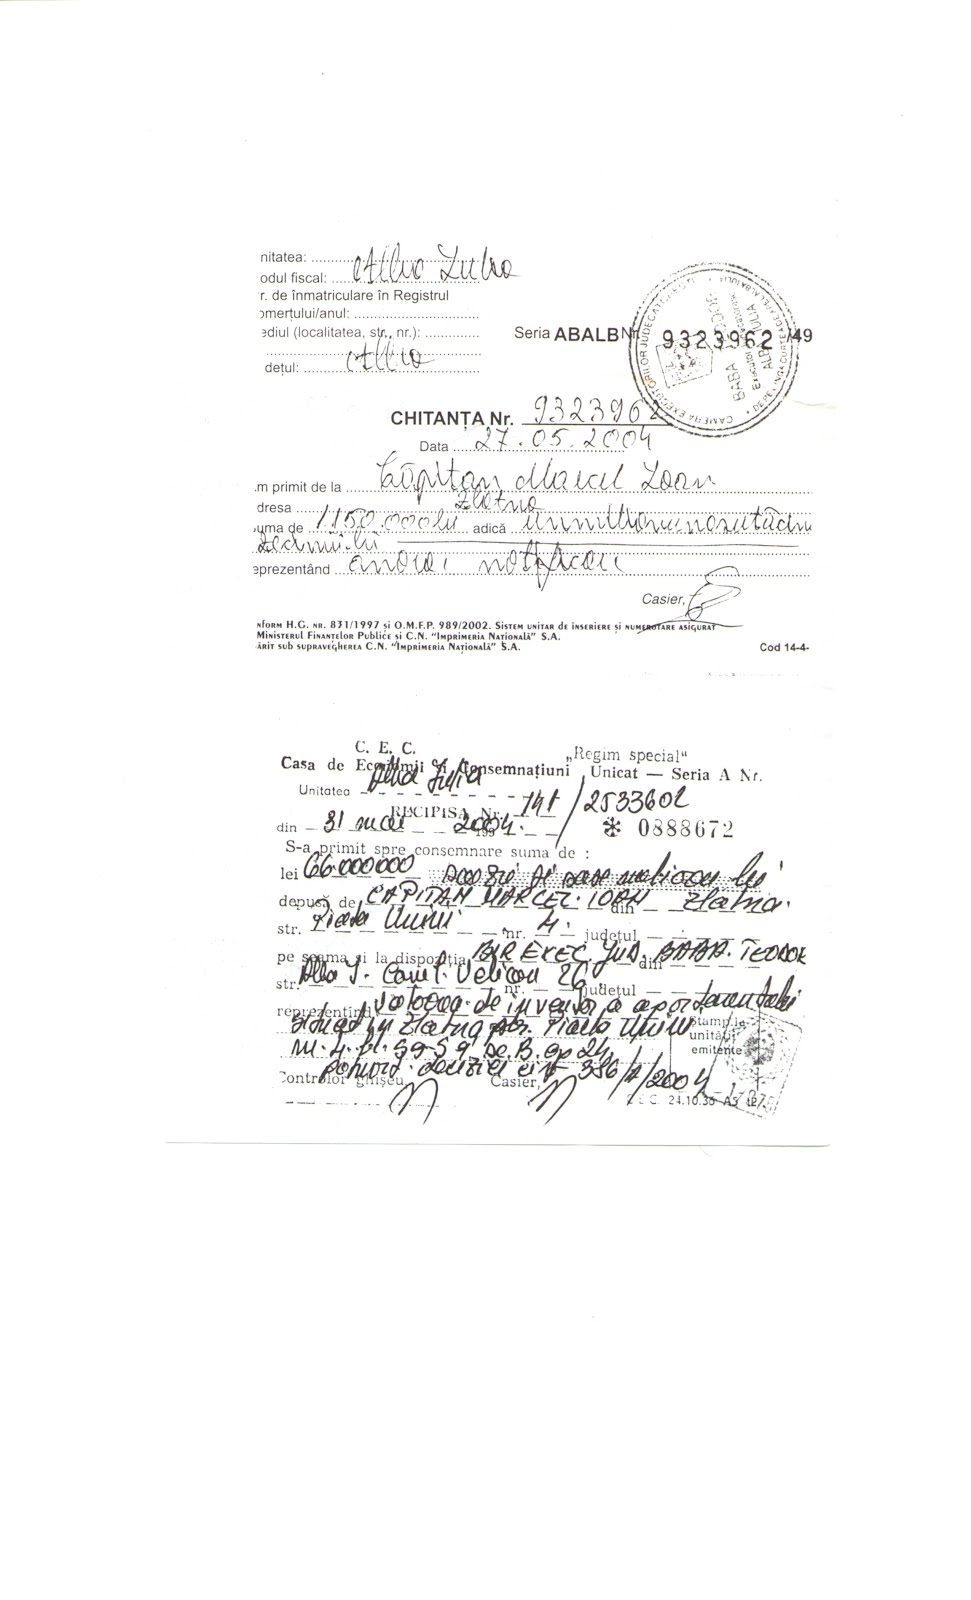 nitatea: Alba Iulia
odul fiscal:
r. de înmatriculare în Registrul
omerțului/anul:
ediul (localitatea, str., nr.):
dețul: Alba
Seria ABALB Nr. 9323962 /49
CAMERA EXECUTORILOR JUDECĂTOREȘTI DE PE LÂNGĂ CURTEA DE APEL ALBA IULIA
BABA TEODOR
Executor Judecătoresc
ALBA IULIA
CHITANȚA Nr. 9323962
Data 27.05.2004
.m primit de la Căpitan Marcel Ioan
dresa Zlatna
uma de 1150.000 lei adică unmilionunasutăcin
zecimii lei
eprezentând onorar notificări
Casier,
nform H.G. nr. 831/1997 și O.M.F.P. 989/2002. Sistem unitar de înseriere și numerotare asigurat
Ministerul Finanțelor Publice și C.N. "Imprimeria Națională" S.A.
ărit sub supravegherea C.N. "Imprimeria Națională" S.A.
Cod 14-4-
C. E. C. „Regim special“
Casa de Economii și Consemnațiuni Unicat — Seria A Nr.
Unitatea Alba Iulia
RECIPISA Nr. 141/2533602
din 31 mai 2004. * 0888672
S-a primit spre consemnare suma de :
lei 66.000000 șase milioane lei
depusă de CAPITAN MARCEL IOAN din Zlatna.
str. Piata Unirii nr. 4. județul
pe seama și la dispoziția BIR EXEC. JUD. BABA TEODOR din
str. Alba I. 26 nr. județul
reprezentind valoarea de a apartamentului
situat în Zlatna str. Piata Unirii
nr. 4. bl. 59-59 sc. B. ap 24,
deciziei civ 386/A/2004
Stampila
unității
emitente
Controlor ghișeu, Casier,
C.E.C. 24.10.36 A5